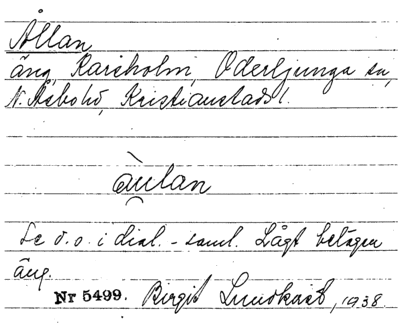 Ållan
äng, Karsholm, Oderljunga sn,
N. Åsbo hd, Kristianstads l.
àu̯lan
Se d. o. i dial. - saml. Lågt belägen
äng.
Nr 5499. Birgit Lundkast, 1938.